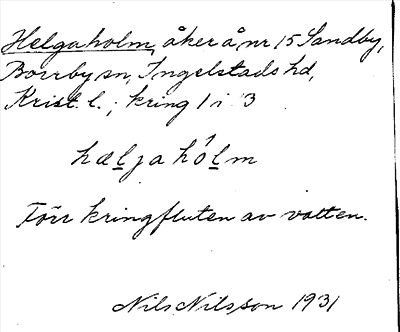 Helgaholm, åker å nr 15 Sandby,
Borrby sn, Ingelstads hd,
Krist. l.; kring 1 i 3
hælja hólm
Förr kringfluten av vatten.
Nils Nilsson 1931